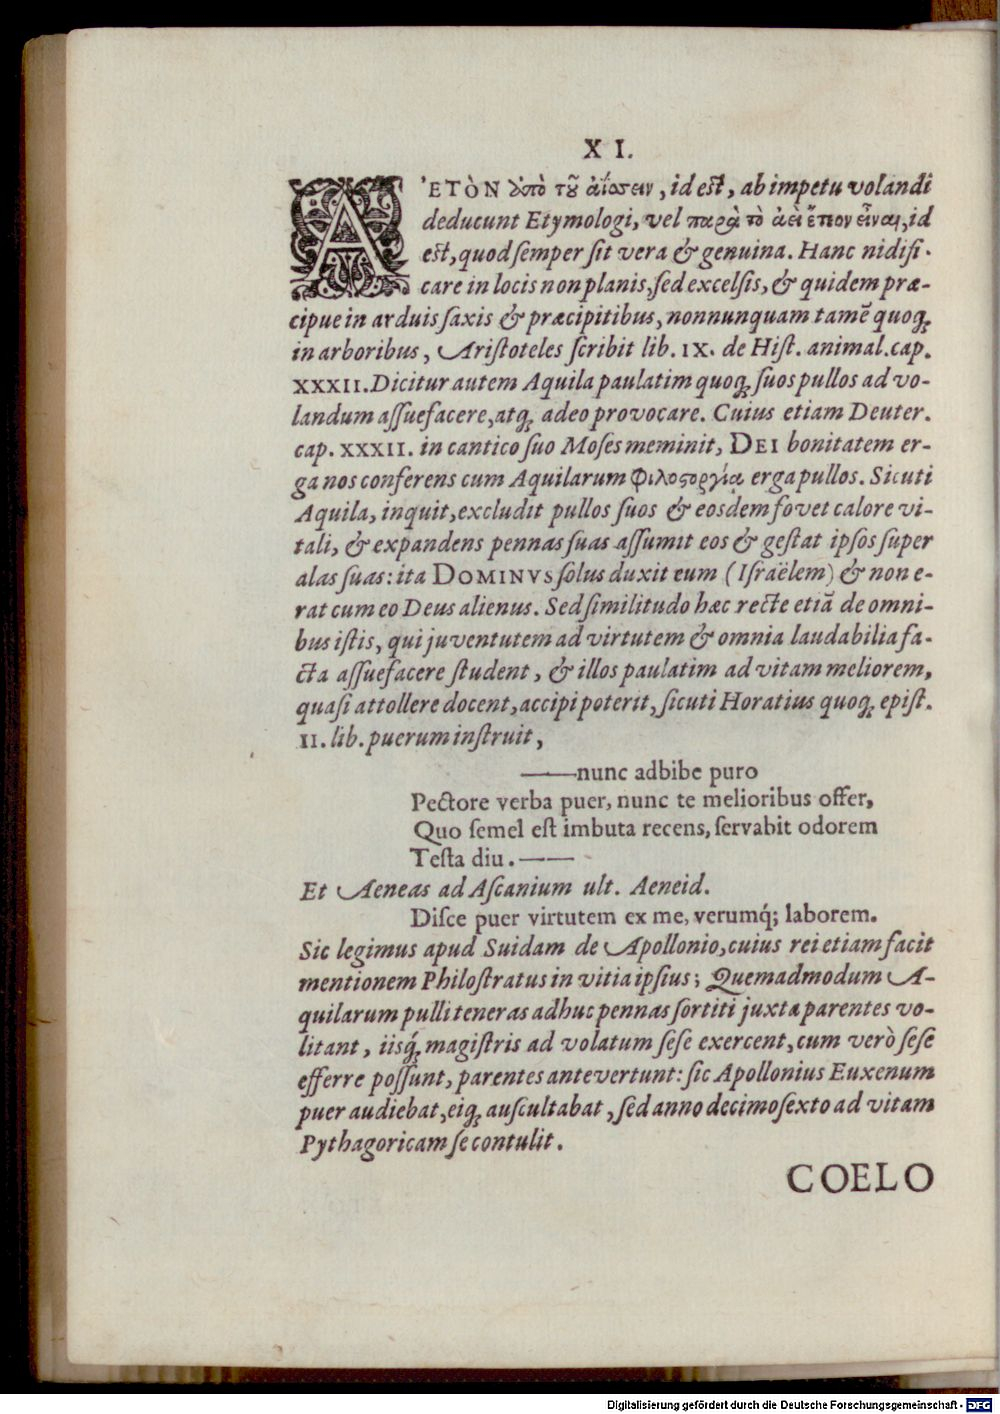 X I.
A ̓ΕΤῸΝ ἀπὸ τῦ ἀΐσσειν, id est, ab impetu volandi
deducunt Etymologi, vel παρὰ τὸ ἀεὶ ἔτεον εἶναι, id
est, quod ſemper ſit vera & genuina. Hanc nidifi-
care in locis non planis, ſed excelſis, & quidem præ-
cipue in arduis ſaxis & præcipitibus, nonnunquam tamē quoq́;
in arboribus, Ariſtoteles ſcribit lib. IX. de Hiſt. animal. cap.
XXXII. Dicitur autem Aquila paulatim quoq́; ſuos pullos ad vo-
landum aſſuefacere, atq́; adeo provocare. Cuius etiam Deuter.
cap. XXXII. in cantico ſuo Moſes meminit, DEI bonitatem er-
ga nos conferens cum Aquilarum Φιλοςοργίᾳ erga pullos. Sicuti
Aquila, inquit, excludit pullos ſuos & eosdem fovet calore vi-
tali, & expandens pennas ſuas aſſumit eos & geſtat ipſos ſuper
alas ſuas: ita DOMINVS ſolus duxit eum (Iſraëlem) & non e-
rat cum eo Deus alienus. Sed ſimilitudo hæc recte etiā de omni-
bus iſtis, qui juventutem ad virtutem & omnia laudabilia fa-
cta aſſuefacere ſtudent, & illos paulatim ad vitam meliorem,
quaſi attollere docent, accipi poterit, ſicuti Horatius quoq́; epiſt.
II. lib. puerum inſtruit,
——nunc adbibe puro
Pectore verba puer, nunc te melioribus offer,
Quo ſemel eſt imbuta recens, ſervabit odorem
Teſta diu. ——
Et Aeneas ad Aſcanium ult. Aeneid.
Diſce puer virtutem ex me, verumq́; laborem.
Sic legimus apud Suidam de Apollonio, cuius rei etiam facit
mentionem Philoſtratus in vitia ipſius; Quemadmodum A-
quilarum pulli teneras adhuc pennas ſortiti juxta parentes vo-
litant, iisq́; magiſtris ad volatum ſeſe exercent, cum verò ſeſe
efferre poſſunt, parentes antevertunt: ſic Apollonius Euxenum
puer audiebat, eiq́; auſcultabat, ſed anno decimo ſexto ad vitam
Pythagoricam ſe contulit.
COELO
Digitalisierung gefördert durch die Deutsche Forschungsgemeinschaft - DFG